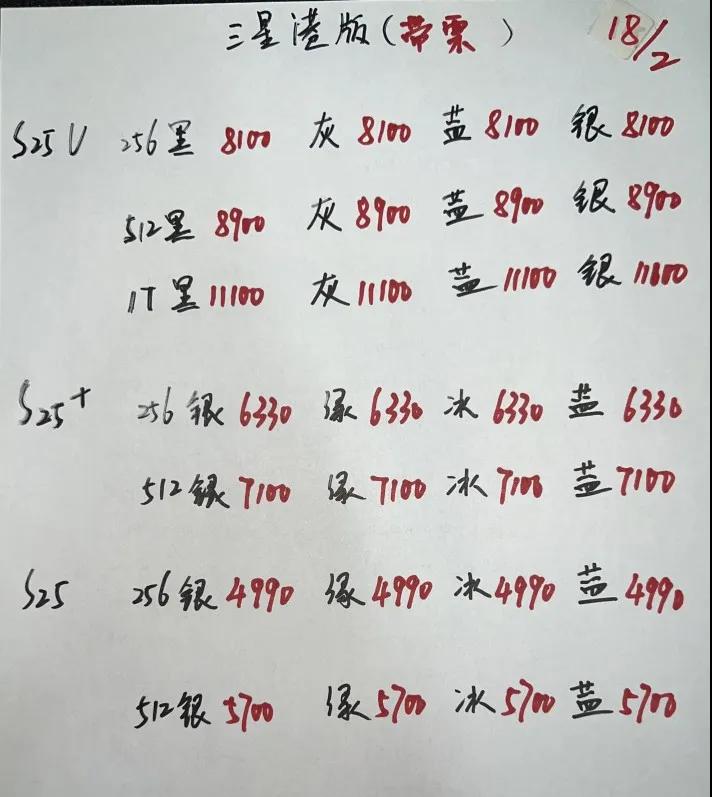 三星港版(带票) 18/2
S25U 256黑 8100 灰 8100 蓝 8100 银 8100
512黑 8900 灰 8900 蓝 8900 银 8900
1T 黑 11100 灰 11100 蓝 11100 银
S25+ 256 银 6330 绿 6330 冰 6330 蓝 6330
512 银 7100 绿 7100 冰 7100 蓝 7100
S25 256 银 4990 绿 4990 冰 4990 蓝 4990
512 银 5700 绿 5700 冰 5700 蓝 5700